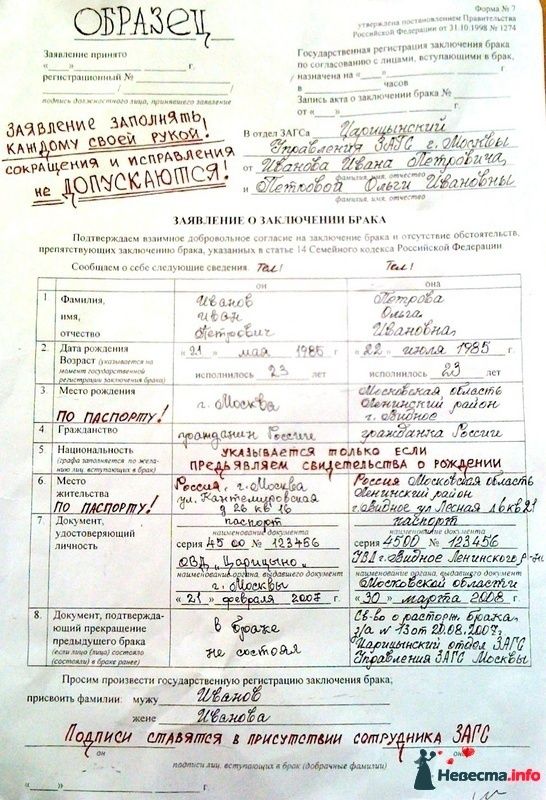 ОБРАЗЕЦ
Форма № 7
утверждена постановлением Правительства
Российской Федерации от 31.10.1998 № 1274
Заявление принято
«____» ____________ г.
регистрационный № ________
________ / ________ /
подпись должностного лица, принявшего заявление
Государственная регистрация заключения брака
по согласованию с лицами, вступающими в брак,
назначена на «____» ____________ г.
в ________ часов
Запись акта о заключении брака № ________
от «____» ____________ г.
ЗАЯВЛЕНИЕ ЗАПОЛНЯТЬ
КАЖДОМУ СВОЕЙ РУКОЙ!
СОКРАЩЕНИЯ И ИСПРАВЛЕНИЯ
НЕ ДОПУСКАЮТСЯ!
В отдел ЗАГСа Царицынский
Управления ЗАГС г. Москвы
от Иванова Ивана Петровича
фамилия, имя, отчество
и Петровой Ольги Ивановны
фамилия, имя, отчество
ЗАЯВЛЕНИЕ О ЗАКЛЮЧЕНИИ БРАКА
Подтверждаем взаимное добровольное согласие на заключение брака и отсутствие обстоятельств,
препятствующих заключению брака, указанных в статье 14 Семейного кодекса Российской Федерации
Сообщаем о себе следующие сведения. Тел! Тел!
он она
1. Фамилия, Иванов Петрова
имя, Иван Ольга
отчество Петрович Ивановна
2. Дата рождения «21» мая 1985 г. «22» июля 1985 г.
Возраст (указывается на
момент государственной
регистрации заключения брака)
исполнилось 23 лет исполнилось 23 лет
3. Место рождения
ПО ПАСПОРТУ!
г. Москва
Московская область
Ленинский район
г. Видное
4. Гражданство гражданин России гражданка России
5. Национальность
(графа заполняется по жела-
нию лиц, вступающих в брак)
УКАЗЫВАЕТСЯ ТОЛЬКО ЕСЛИ
ПРЕДЪЯВЛЯЕМ СВИДЕТЕЛЬСТВА О РОЖДЕНИИ
6. Место
жительства
ПО ПАСПОРТУ!
Россия, г. Москва
ул. Кантемировская
д 26 кв 16
Россия Московская область
Ленинский район
г. Видное ул Лесная д6 кв 21
7. Документ,
удостоверяющий
личность
паспорт
наименование документа
серия 45 00 № 123456
ОВД „Царицыно"
наименование органа, выдавшего документ
г. Москвы
«21» февраля 2007 г.
паспорт
наименование документа
серия 4500 № 123456
УВД г. Видное Ленинского р-на
наименование органа, выдавшего документ
Московской области
«30» марта 2008 г.
8. Документ, подтвержда-
ющий прекращение
предыдущего брака
(если лицо (лица) состояло
(состояли) в браке ранее)
в браке
не состоял
Св-во о расторж. брака,
з/а № 13 от 20.08.2007г.
Царицынский отдел ЗАГС
Управления ЗАГС Москвы
Просим произвести государственную регистрацию заключения брака,
присвоить фамилии: мужу Иванов
жене Иванова
ПОДПИСИ СТАВЯТСЯ В ПРИСУТСТВИИ СОТРУДНИКА ЗАГС
он она
подписи лиц, вступающих в брак (добрачные фамилии)
«____» ____________ г.
Невеста.info